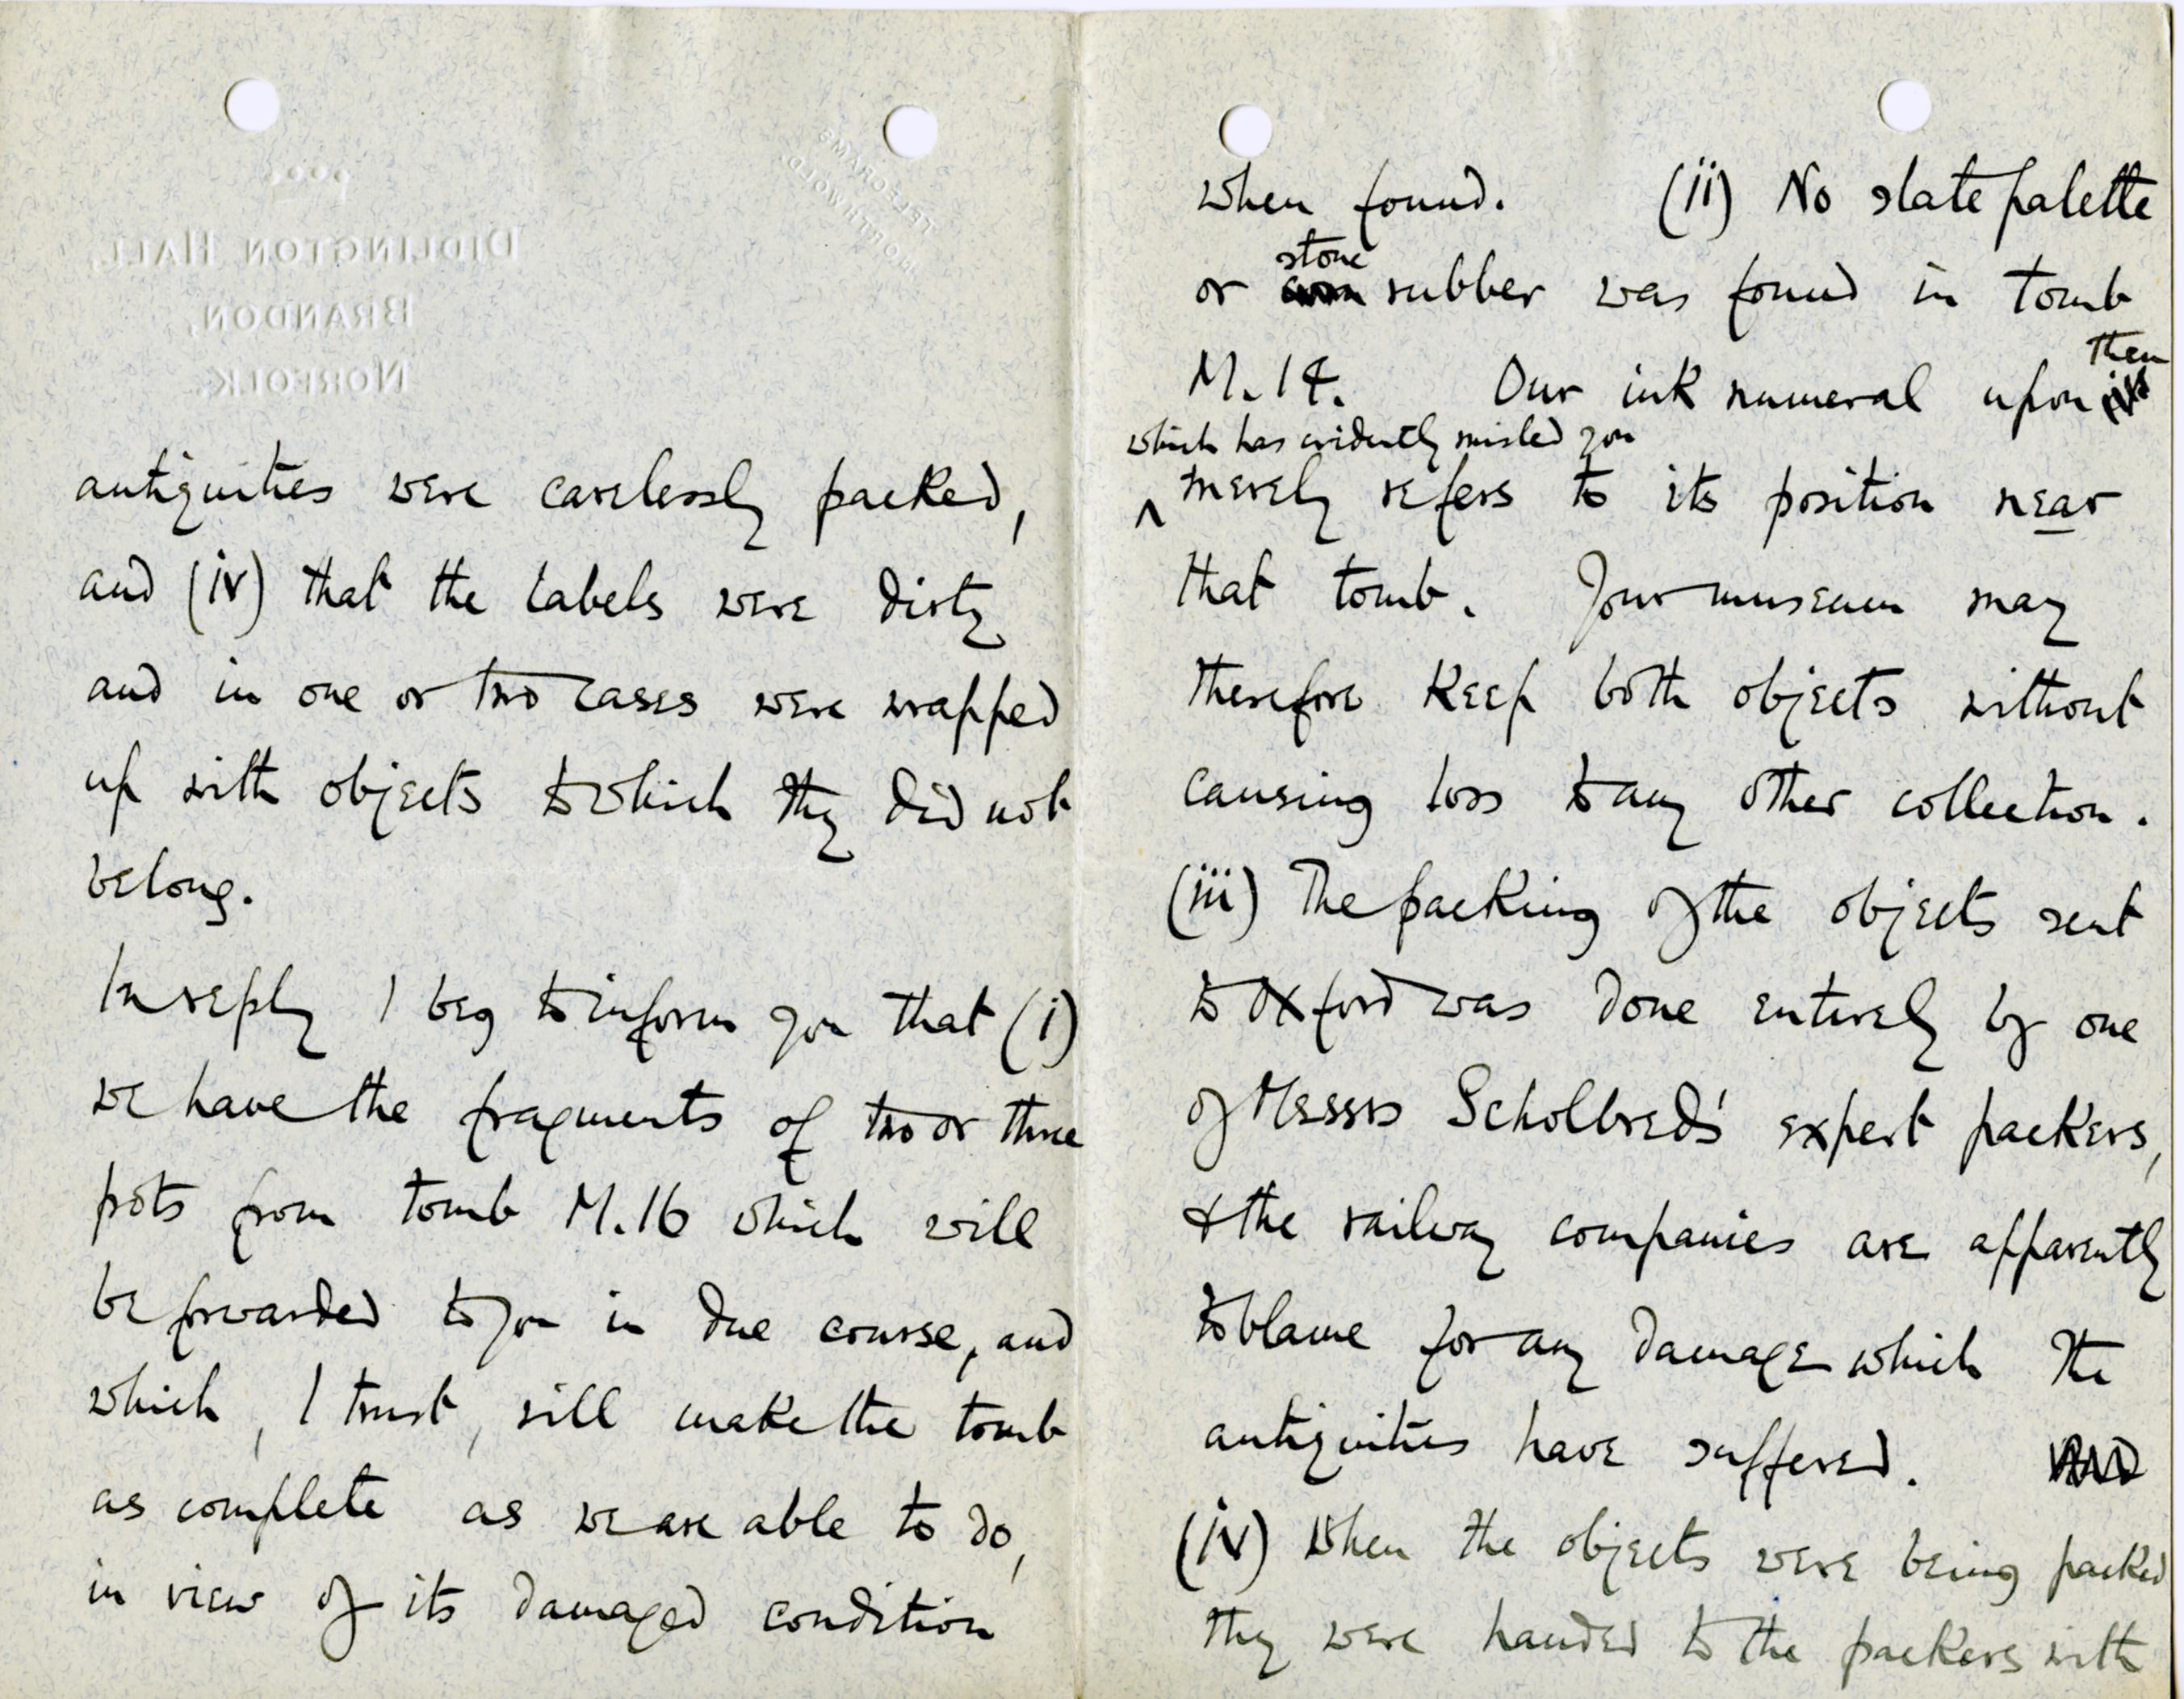 DIDLINGTON HALL,
BRANDON,
NORFOLK.
TELEGRAMS
NORTHWOLD.
antiquities were carelessly packed,
and (iv) that the labels were dirty
and in one or two cases were wrapped
up with objects to which they did not
belong.
In reply I beg to inform you that (i)
we have the fragments of two or three
pots from tomb M.16 which will
be forwarded to you in due course, and
which, I trust, will make the tomb
as complete as we are able to do,
in view of its damaged condition
when found. (ii) No slate palette
stone
or rubber was found in tomb
them
M.14. Our ink numeral upon
which has evidently misled you
^ merely refers to its position near
that tomb. Your museum may
therefore keep both objects without
causing loss to any other collection.
(iii) The packing of the objects sent
to Oxford was done entirely by one
of Messrs Scholbred's expert packers,
& the railway companies are apparently
to blame for any damage which the
antiquities have suffered.
(iv) When the objects were being packed
they were handed to the packers with